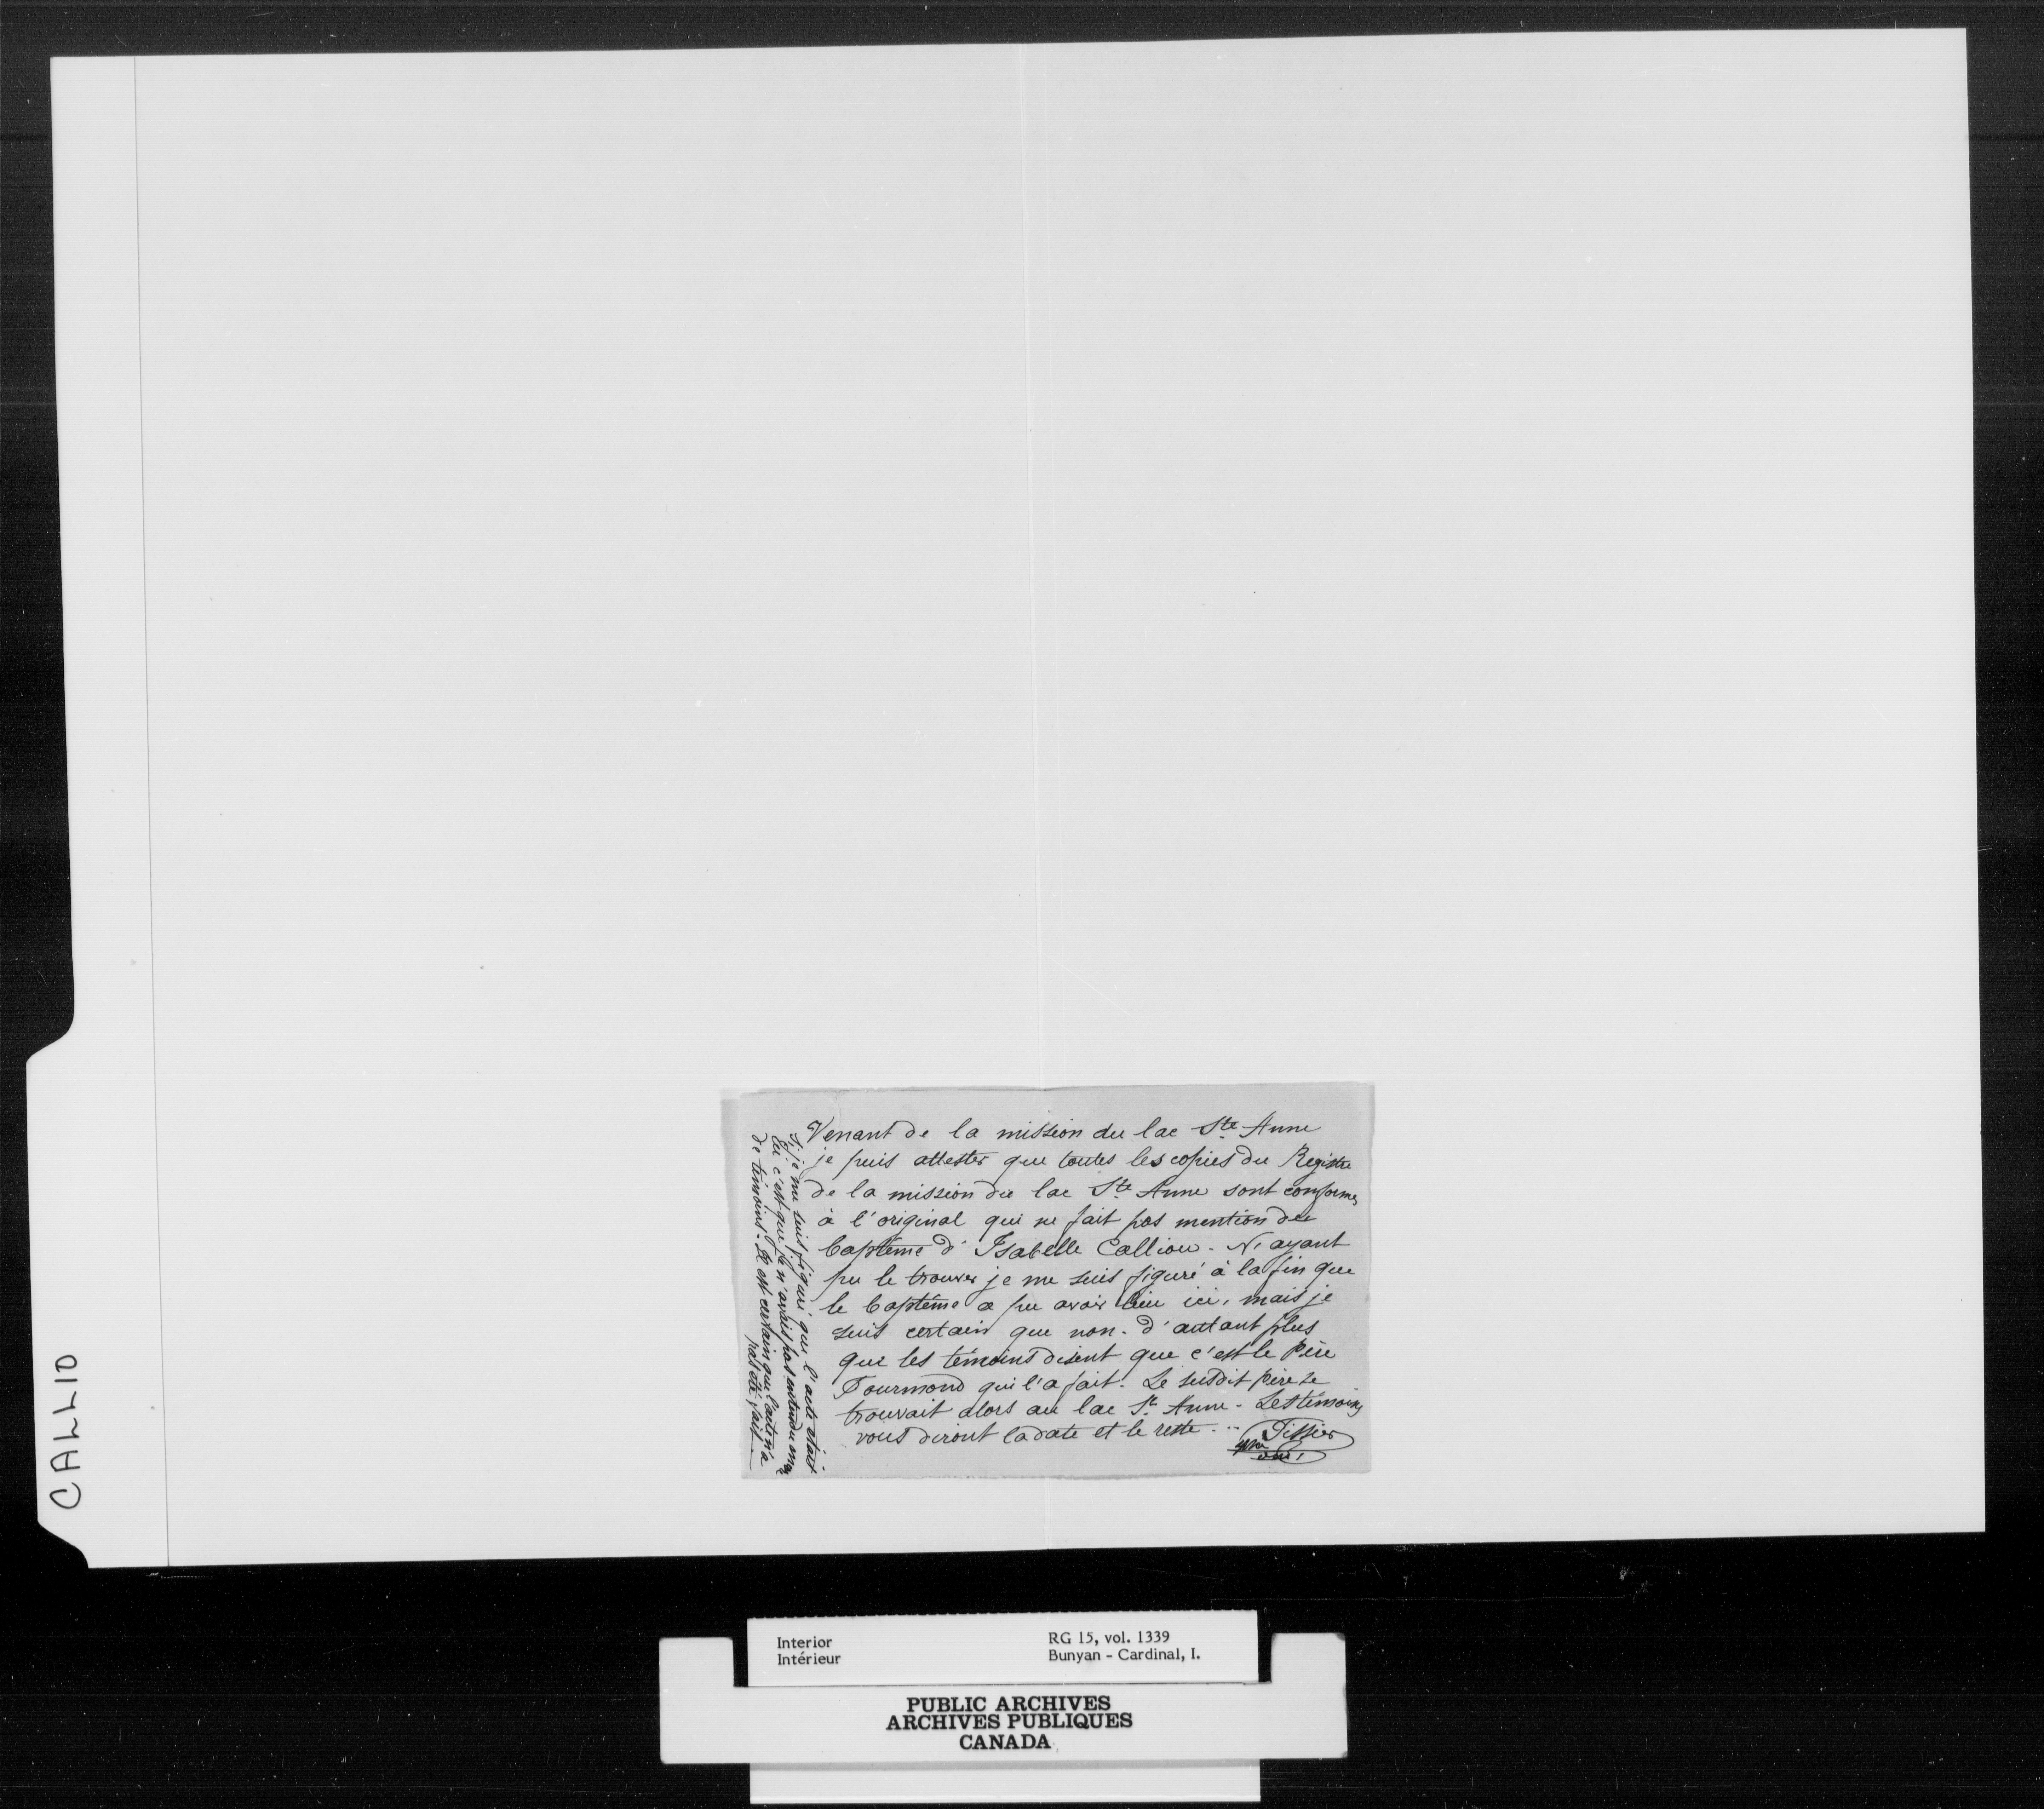 Venant de la mission du lac Ste Anne
je puis attester que toutes les copies du Registre
de la mission du lac Ste Anne sont conformes
à l'original qui ne fait pas mention du
baptême d'Isabelle Calliou - N'ayant
pu le trouver je me suis figuré à la fin que
le baptême a pu avoir lieu ici, mais je
suis certain que non. d'autant plus
que les témoins disent que c'est le Père
Fourmond qui l'a fait. Le susdit père se
trouvait alors au lac Ste Anne - Les témoins
vous diront la date et le reste...
Tissier
ptre
omi
Si je me suis figuré que l'acte était
ici c'est que je n'avais pas entendu
de témoins - Il est certain que l'acte n'a
pas été fait
CALLIO
Interior
Intérieur
RG 15, vol. 1339
Bunyan - Cardinal, I.
PUBLIC ARCHIVES
ARCHIVES PUBLIQUES
CANADA